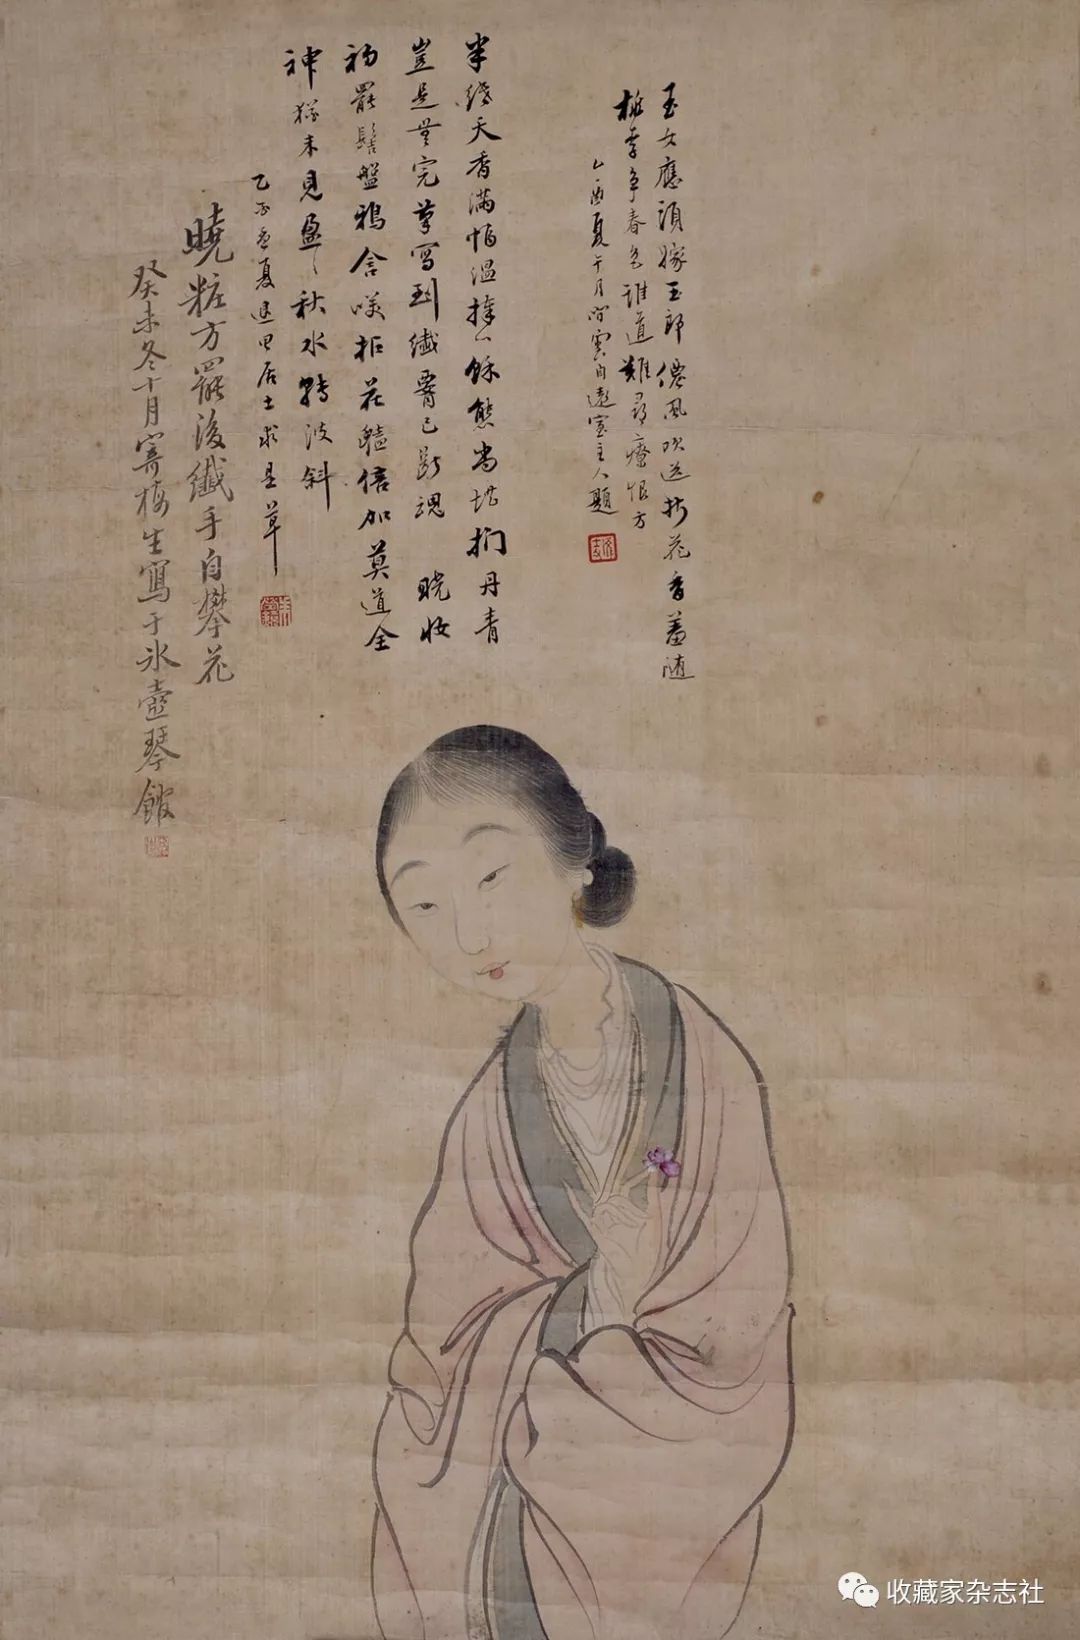 玉女應須嫁玉郎僊風吹送折花香羞隨
桃李爭春色誰道難尋療恨方
乙酉夏午月 雲自遠室主人題
半綫天香滿怕温捧餘態尚堪捫丹青
豈是無完草寫到纖霄已斷魂 曉妝
初罷髻盤鴉含咲拈花豔倍加莫道全
神猶未見盈〻秋水轉波斜
乙酉 夏 里居士求是草
曉粧方罷後纖手自攀花
癸未冬十月寄梅生寫于冰壺琴館
收藏家杂志社